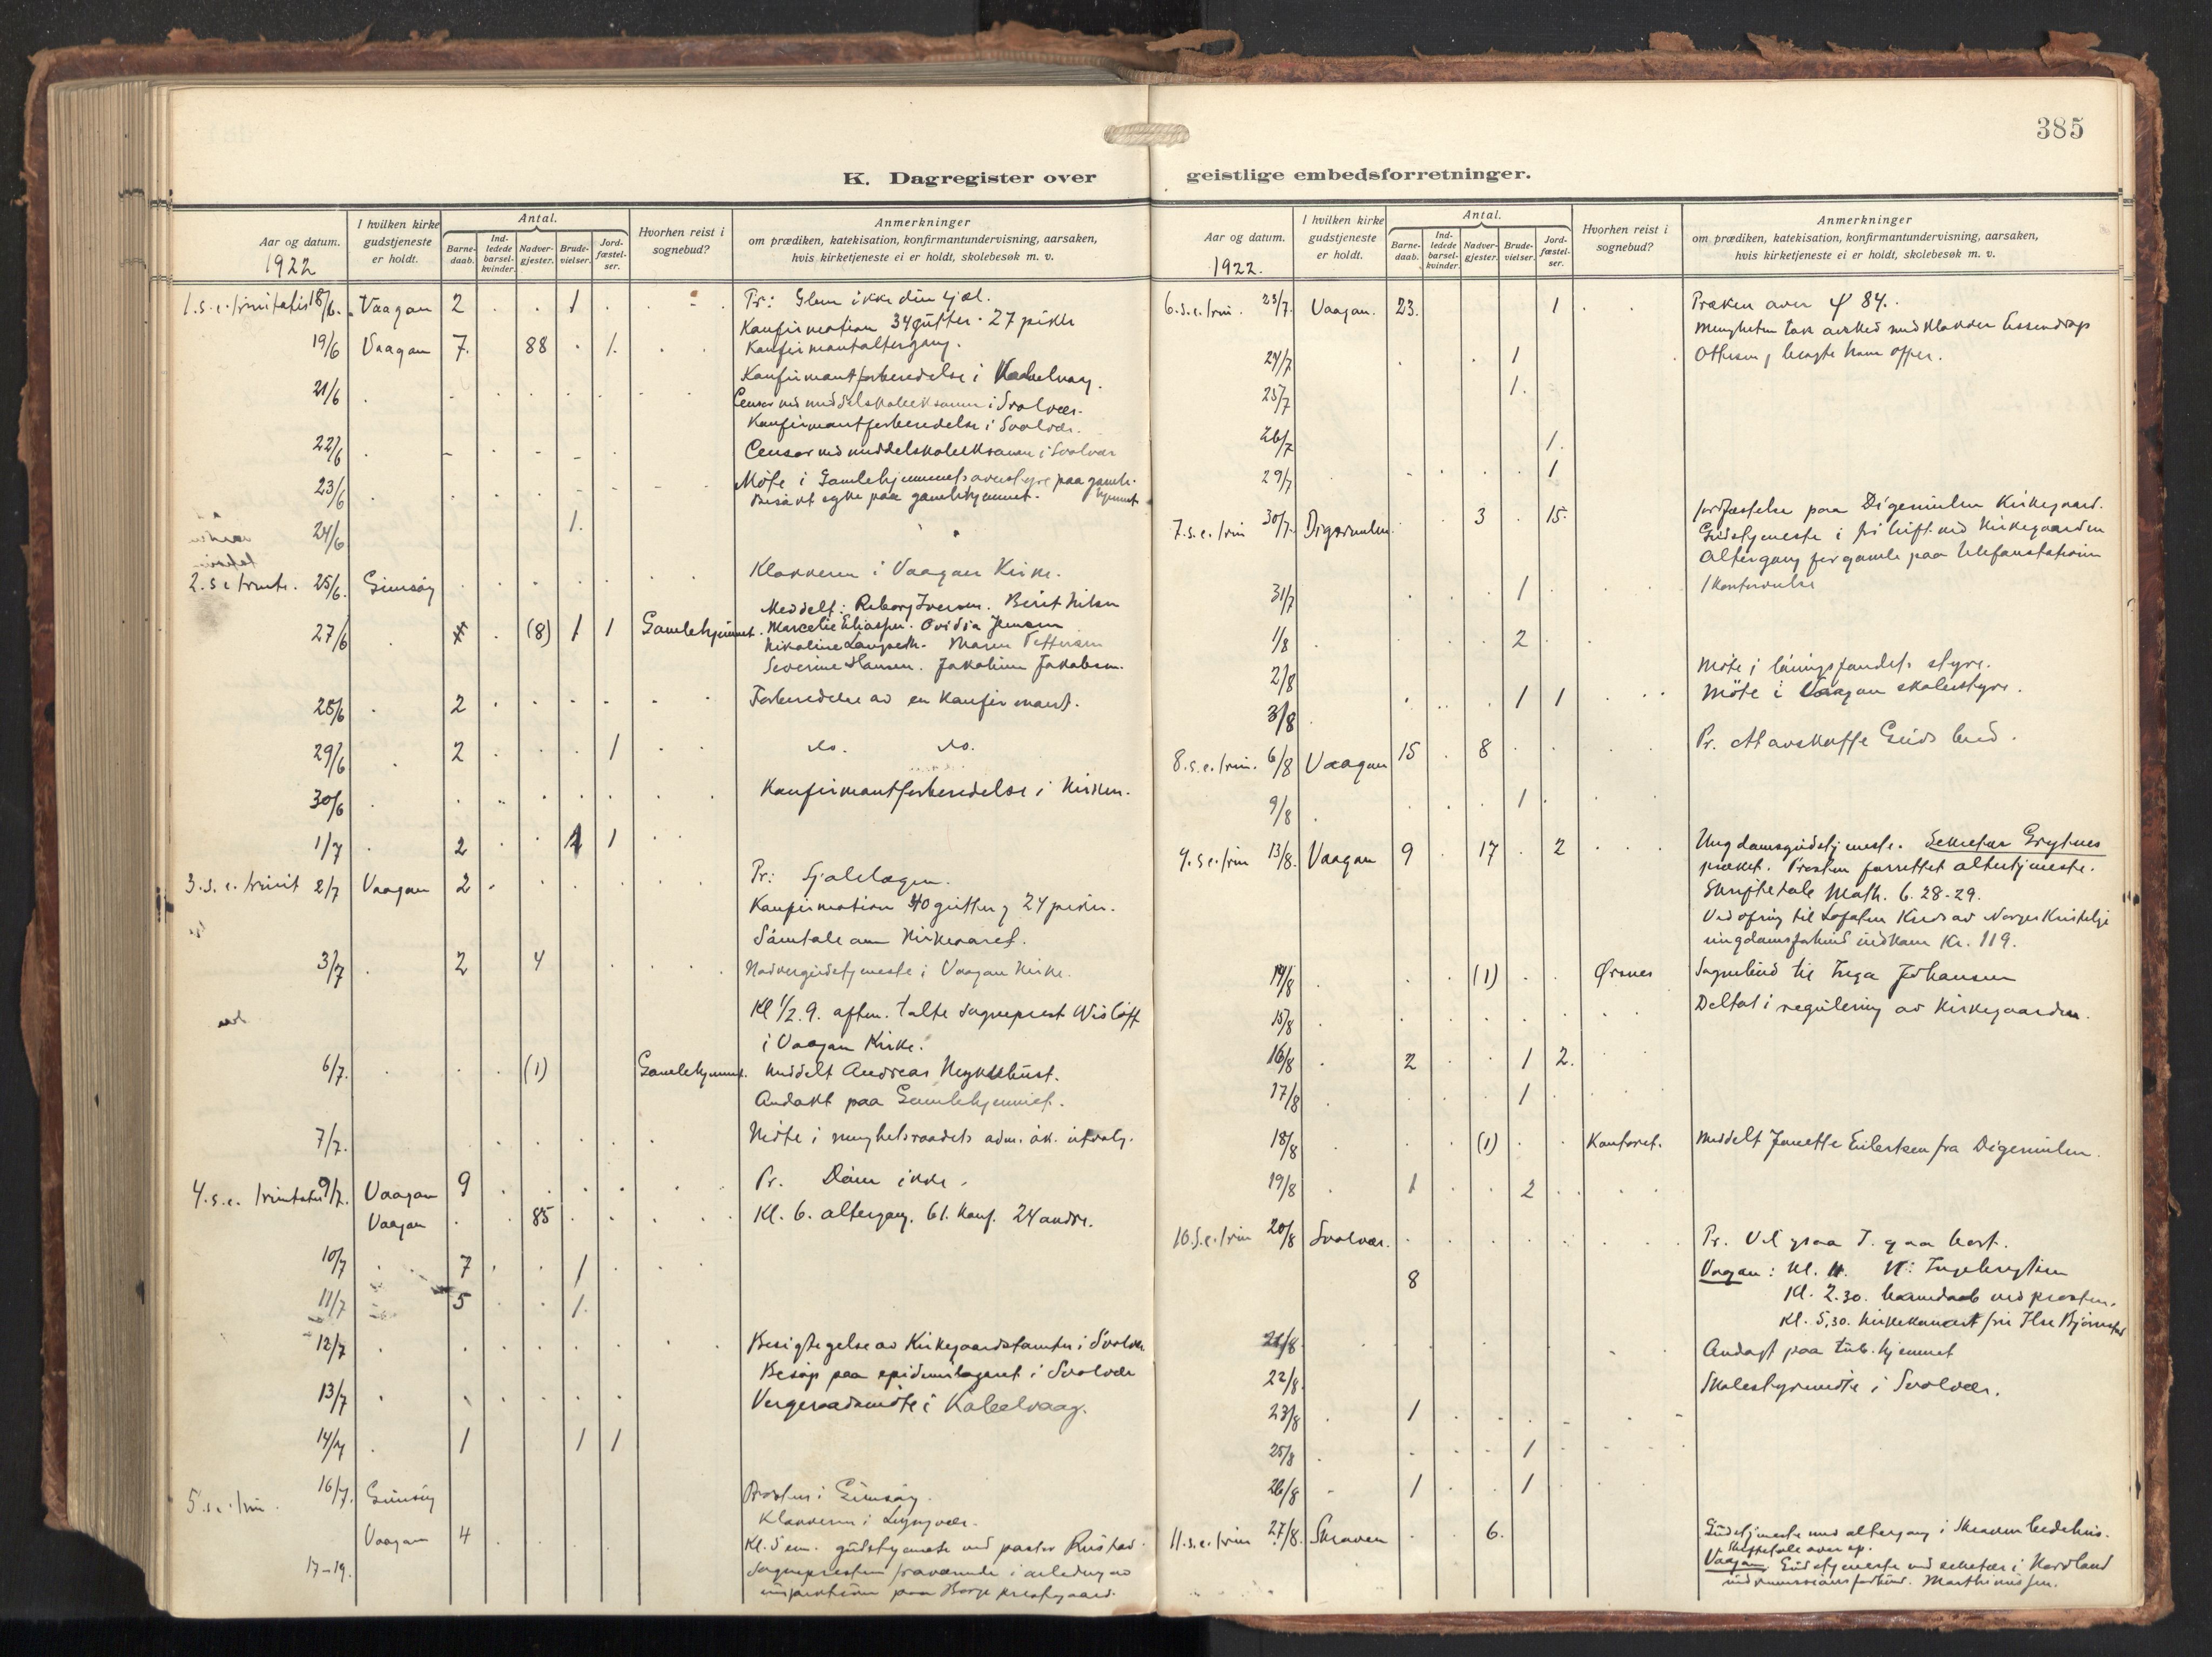 385
K. Dagregister over geistlige embedsforretninger.
Aar og datum. 1922
I hvilken kirke gudstjeneste er holdt.
Antal.
Barne-daab.
Ind-ledede barsel-kvinder.
Nadver-gjester.
Brude-vielser.
Jord-fæstel-ser.
Hvorhen reist i sognebud?
Anmerkninger
om prædiken, katekisation, konfirmantundervisning, aarsaken,
hvis kirketjeneste ei er holdt, skolebesøk m. v.
1. s. e. trinitatis 18/6. Vaagan 2 . . 1 . Pr: Glem ikke din sjæl.
Konfirmation 34 gutter. 27 piker
19/6 Vaagan 7. 88 . 1. Konfirmantaltergang.
Konfirmantforberedelse i Kabelvaag.
21/6 Censor ved middelskoleeksamen i Svolvær.
Konfirmantforberedelse i Svolvær.
22/6 Censor ved middelskoleeksamen i Svolvær
23/6 Møte i Gamlehjemmets overstyre paa gamle-
hjemmet
Besøkt syke paa gamlehjemmet.
24/6 1.
2. s. e. trinit. 25/6. Gimsøy Klokkeren i Vaagan Kirke.
Meddelt: Iversen. Berit Nilsen
27/6 (8) 1 1 Gamlehjemmet. Marcelie Eliassen. Ovidia Jensen
Nikoline Maren Pettersen
Severine Hansen. Jakobine Jakobsen.
28/6 2 Forberedelse av en konfirmant.
29/6 2 1 do. do.
30/6 Konfirmantforberedelse i kirken.
1/7 2 1 1
3. s. e. trinit 2/7 Vaagan 2 Pr: Sjælelægen.
Konfirmation 40 gutter, 24 piker.
Samtale om
3/7 2 4 Nadvergudstjeneste i Vaagan Kirke.
Kl 1/2 9. aften. talte sogneprest Wisløff
i Vaagan Kirke.
6/7. (1) Gamlehjemmet. Meddelt Andreas
Andakt paa Gamlehjemmet.
7/7. Møte i menighetsraadets adm. øk. utvalg.
4. s. e. trinitatis 9/7. Vaagan 9 Pr. Døm ikke.
Vaagan 85 Kl. 6. altergang. 61. konf. 24 andre.
10/7 7 1
11/7 5 1.
12/7 Besigtigelse av Kirkegaardstomten i Svolvær
Besøk paa epidemilasaret i Svolvær
13/7 Vergeraadsmøte i Kabelvaag.
14/7 1 1 1
5. s. e. trin. 16/7. Gimsøy Prosten i Gimsøy.
Klokkeren i
Vaagan 4 Kl. 5 em. gudstjeneste ved pastor Rustad.
17-19. Sognepresten fraværende i anledning av
paa Borge prestegaard.
Aar og datum. 1922.
I hvilken kirke gudstjeneste er holdt.
Antal.
Barne-daab.
Ind-ledede barsel-kvinder.
Nadver-gjester.
Brude-vielser.
Jord-fæstel-ser.
Hvorhen reist i sognebud?
Anmerkninger
om prædiken, katekisation, konfirmantundervisning, aarsaken,
hvis kirketjeneste ei er holdt, skolebesøk m. v.
6. s. e. trin. 23/7. Vaagan. 23. 1 Præken over ψ 84.
Menigheten tok avsked med klokker Essendrop
Ottesen, bragte ham offer.
24/7 1
25/7 1.
26/7 1.
29/7 1
7. s. e. trin 30/7. Digermulen. 3 15. Jordfæstelse paa Digermulen Kirkegaard.
Gudstjeneste i fri luft ved kirkegaarden
Altergang for gamle paa telefonstationen
31/7 1
1/8 2
2/8 Møte i styre.
3/8 1 1 Møte i Vaagan skolestyre.
8. s. e. trin. 6/8 Vaagan 15 8 Pr. At avskaffe Guds bud.
9/8 1
9. s. e. trin 13/8. Vaagan 9 17 2 Ungdomsgudstjeneste. Sekretær Grytnes
præket. Prosten forrettet altertjeneste.
Skriftetale Math. 6. 28-29.
Ved ofring til Lofoten Kreds av Norges Kristelige
ungdomsforbund indkom Kr. 119.
14/8 (1) Ørsnes Sognebud til Inga Johansen
15/8 Deltat i regulering av kirkegaarden.
16/8 2 1 2.
17/8 1
18/8 (1) Kontoret. Meddelt Janette Eilertsen fra Digermulen.
19/8 1 2
10. s. e. trin 20/8 Svolvær. Pr. Vil ogsaa I. gaa bort.
8 Vaagan: Kl. 11. Ingebrigtsen
Kl. 2.30. barnedaab ved prosten.
Kl. 5.30. kirkekoncert
21/8 Andagt paa tub. hjemmet
22/8 Skolestyremøte i Svolvær.
23/8 1
25/8 1
26/8 1 1
11. s. e. trin 27/8. Skroven 6. Gudstjeneste med altergang i Skroven bedehus.
Skriftetale over
Vaagan Gudstjeneste ved sekretær i Nordland
Marthinussen.